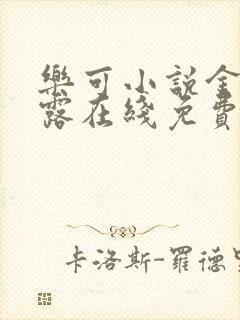 樂可小說金
露在綫免費
卡洛斯-羅德里